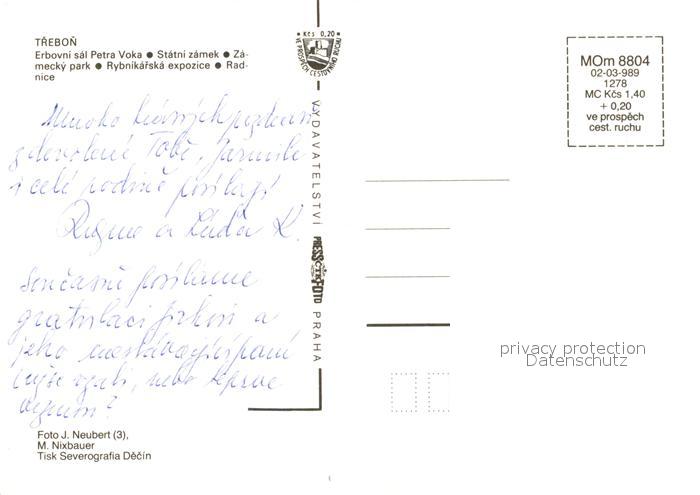 TŘEBOŇ
Erbovní sál Petra Voka ● Státní zámek ● Zá-
mecký park ● Rybníkářská expozice ● Rad-
nice
Kčs 0,20
VE PROSPĚCH CESTOVNÍHO RUCHU
MOm 8804
02-03-989
1278
MC Kčs 1,40
+ 0,20
ve prospěch
cest. ruchu
Mnoho krásných pozdravů
z dovolené Tobě, Jarmile
i celé rodině posílají
a Láďa K.
Současně posíláme
gratulaci a
jeho nastávající paní
nebo teprve
VYDAVATELSTVÍ
PRESSFOTO
PRAHA
privacy protection
Datenschutz
Foto J. Neubert (3),
M. Nixbauer
Tisk Severografia Děčín